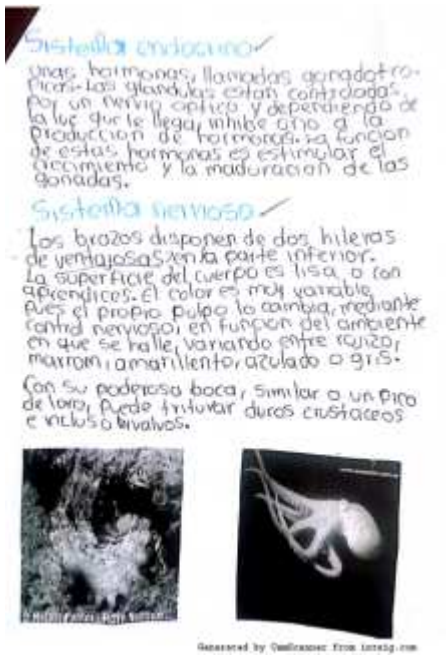 Sistema endocrino
unas hormonas, llamadas gonadotro-
picas. Las glandulas estan controdagas,
por un nervio optico y dependiendo de
la luz que le llega, inhibe o no a la
produccion de hormonas. La funcion
de estas hormonas es estimular el
crecimiento y la maduracion de las
gonadas.
Sistema nervioso
Los brazos disponen de dos hileras
de ventajosas en la parte inferior.
La superficie del cuerpo es lisa, o con
aprendices. El color es muy variable
pues el propio pulpo lo cambia, mediante
control nervioso, en funcion del ambiente
en que se halle, variando entre rojizo,
marrom, amarillento, azulado o gris.
Con su poderosa boca, similar a un pico
de loro, puede triturar duros crustaceos
e incluso bivalvos.
Generated by CamScanner from intsig.com